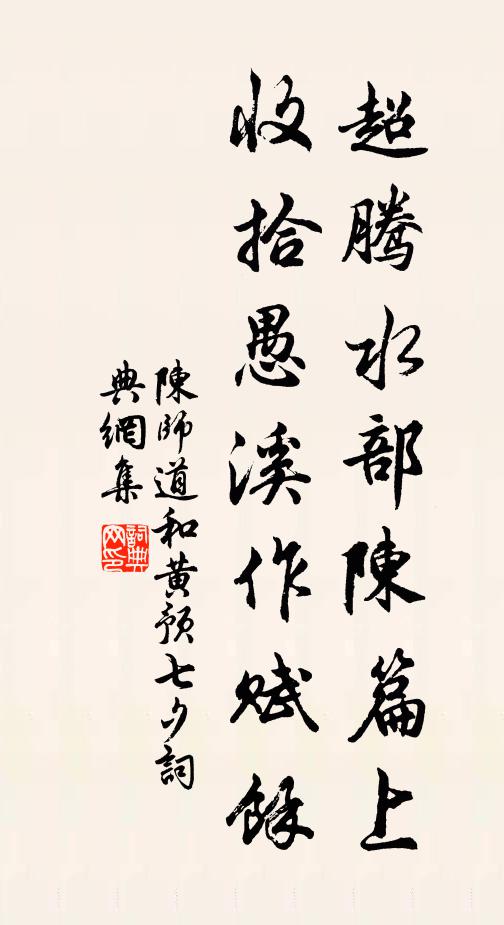 超騰水部陳篇上
收拾愚溪作賦餘
陳師道和黃預七夕詞
典網集
詞典
网印